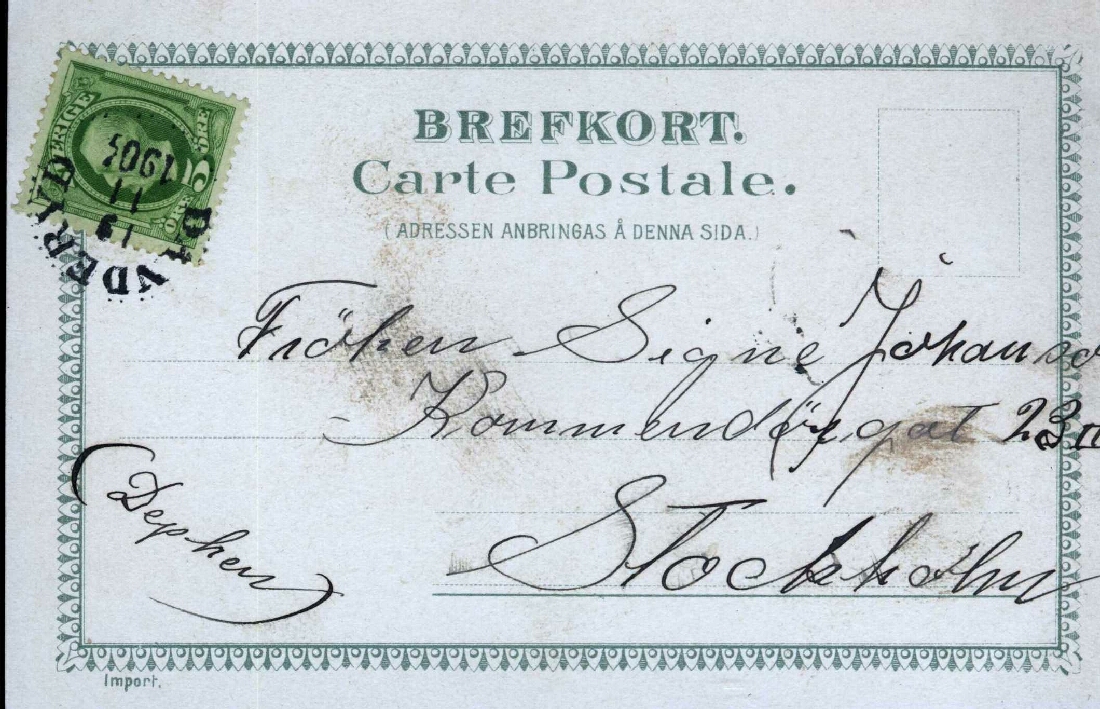 BREFKORT.
Carte Postale.
(ADRESSEN ANBRINGAS Å DENNA SIDA.)
SVERIGE
5 ÖRE
ÖRE
1903
11
Fröken Signe Johansso
Kommendörsgat 23 II
Stockholm
Import.